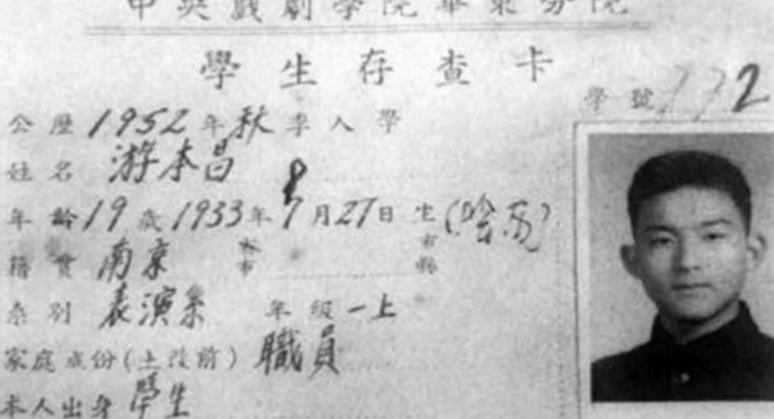 中央戲劇學院華東分院
學生存查卡
學號 2
公歷1952年秋季入學
姓名 游本昌
年齡19歲1933年8月27日生
籍貫 南京 市 市縣
系別 表演系 年級 一上
家庭成份(土改前) 職員
本人出身 學生